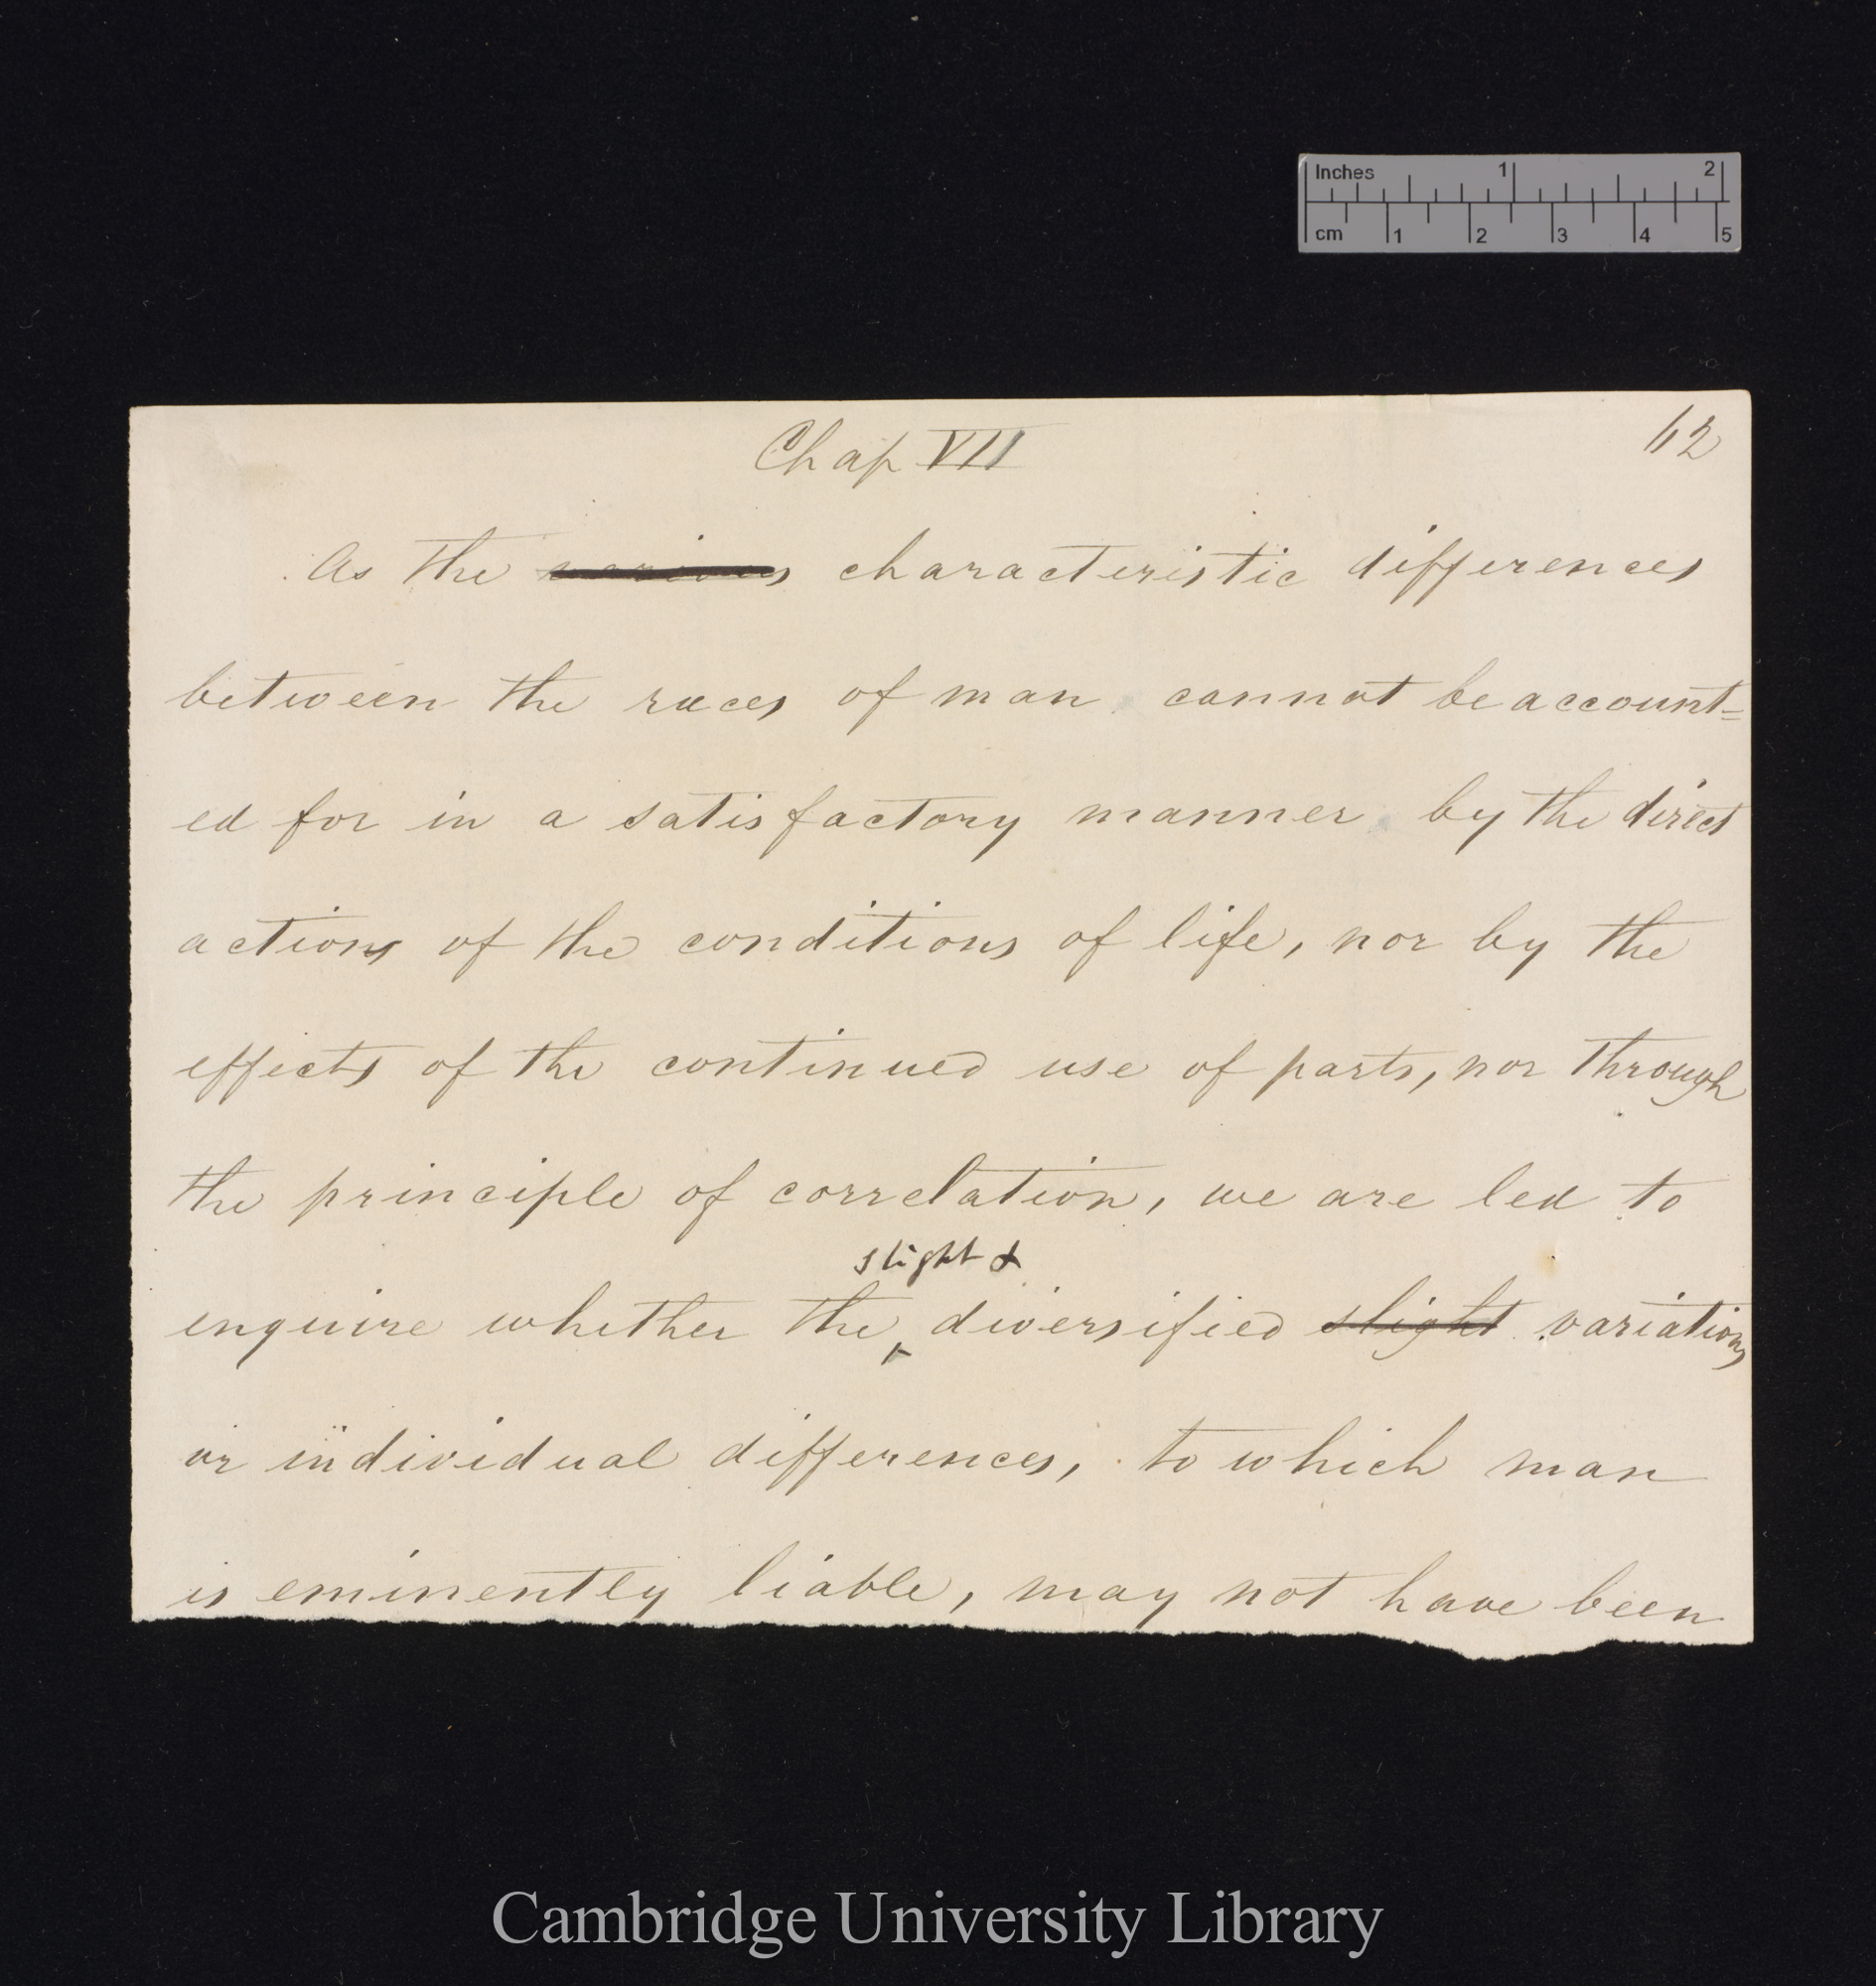 Inches 1 2
cm 1 2 3 4 5
Chap VII 62
As the various characteristic differences
between the races of man cannot be account=
ed for in a satisfactory manner by the direct
actions of the conditions of life, nor by the
effects of the continued use of parts, nor through
the principle of correlation, we are led to
slight &
enquire whether the diversified slight variations
or individual differences, to which man
is eminently liable, may not have been
Cambridge University Library